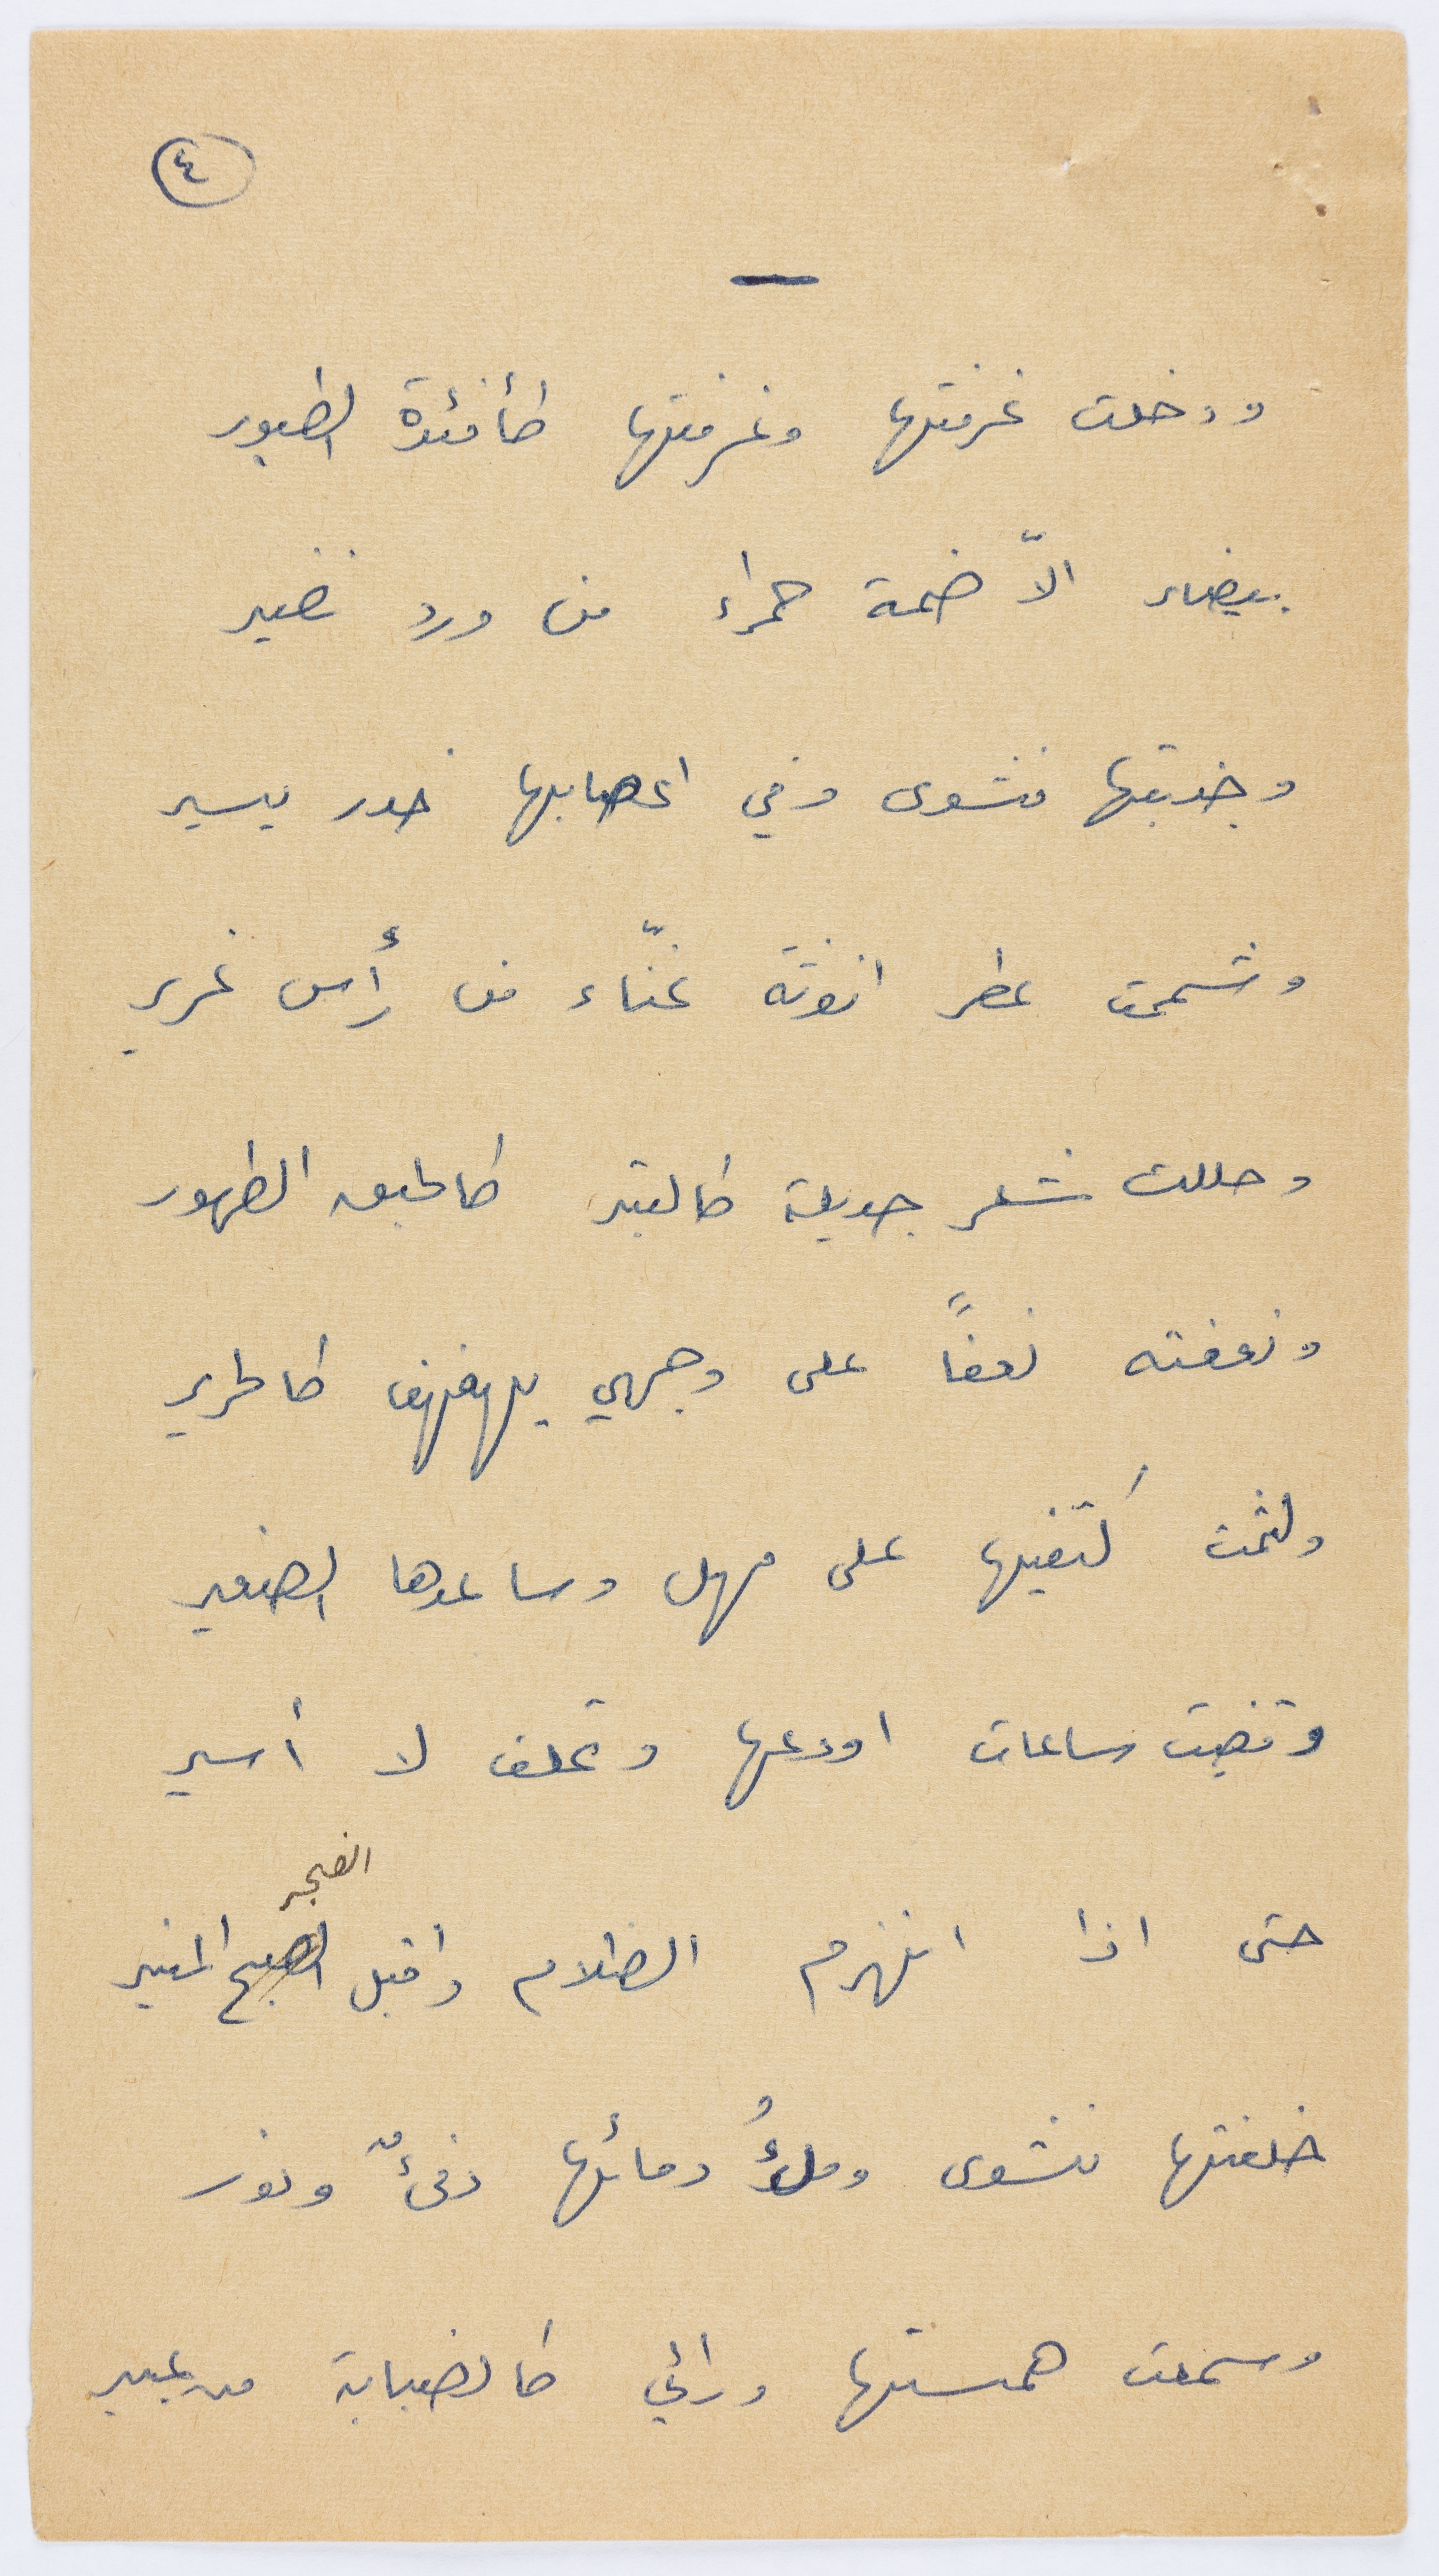 ٤
ودخلت غرفتها وغرفتها كأفئدة الطيور
بيضاء الاّ ضمة حمراء من ورد نضير
وجذبتها نشوى وفي اعصابها خدر يسير
وشممت عطر انوثة غنّاء من رأس غرير
وحللت شعر جديلة كالتبر كالحبق الطهور
ونعفته نعفاً على وجهي يهفهف كالحرير
ولثمت كتفيها على مهل وساعدها الصغير
وقضيت ساعات اودعها وتحلف لا أسير
الفجر
حتى اذا انهزم الظلام واقبل الصبح المنير
خلفتها نشوى وملءُ دمائها دفءٌ ونور
وسمعت همستها ورائي كالضبابة من عبير